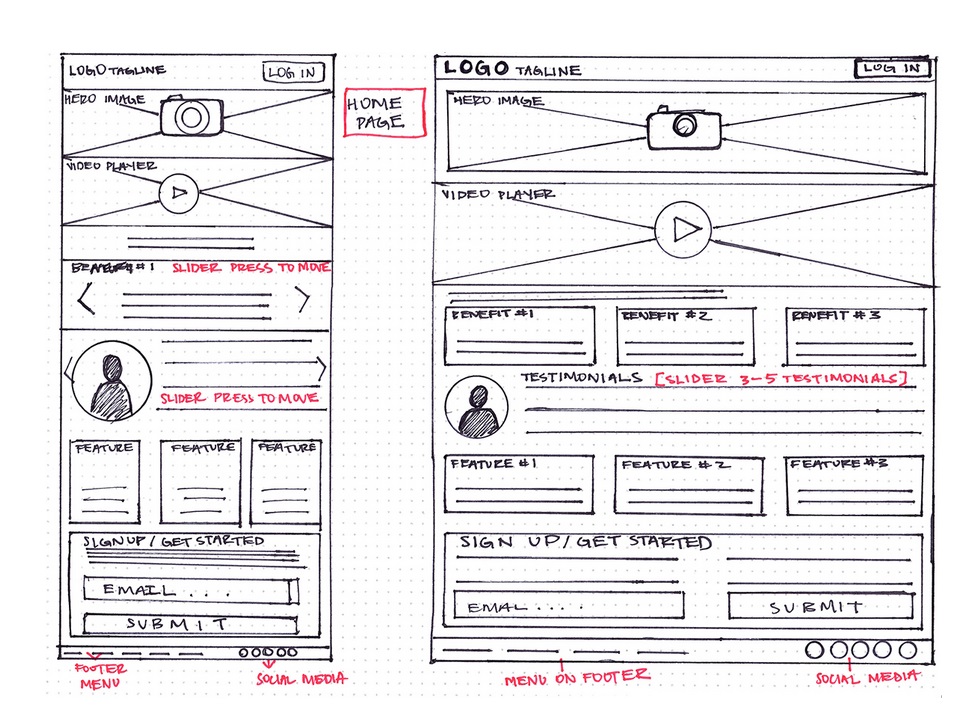 LOGO TAGLINE
LOG IN
HERO IMAGE
VIDEO PLAYER
#1 SLIDER PRESS TO MOVE
SLIDER PRESS TO MOVE
FEATURE FEATURE FEATURE
SIGN UP / GET STARTED
EMAIL . . . .
SUBMIT
FOOTER
MENU
SOCIAL MEDIA
HOME
PAGE
LOGO TAGLINE
LOG IN
HERO IMAGE
VIDEO PLAYER
BENEFIT #1 BENEFIT #2 BENEFIT #3
TESTIMONIALS [SLIDER 3-5 TESTIMONIALS]
FEATURE #1 FEATURE #2 FEATURE #3
SIGN UP / GET STARTED
EMAL . . . .
SUBMIT
MENU ON FOOTER
SOCIAL MEDIA